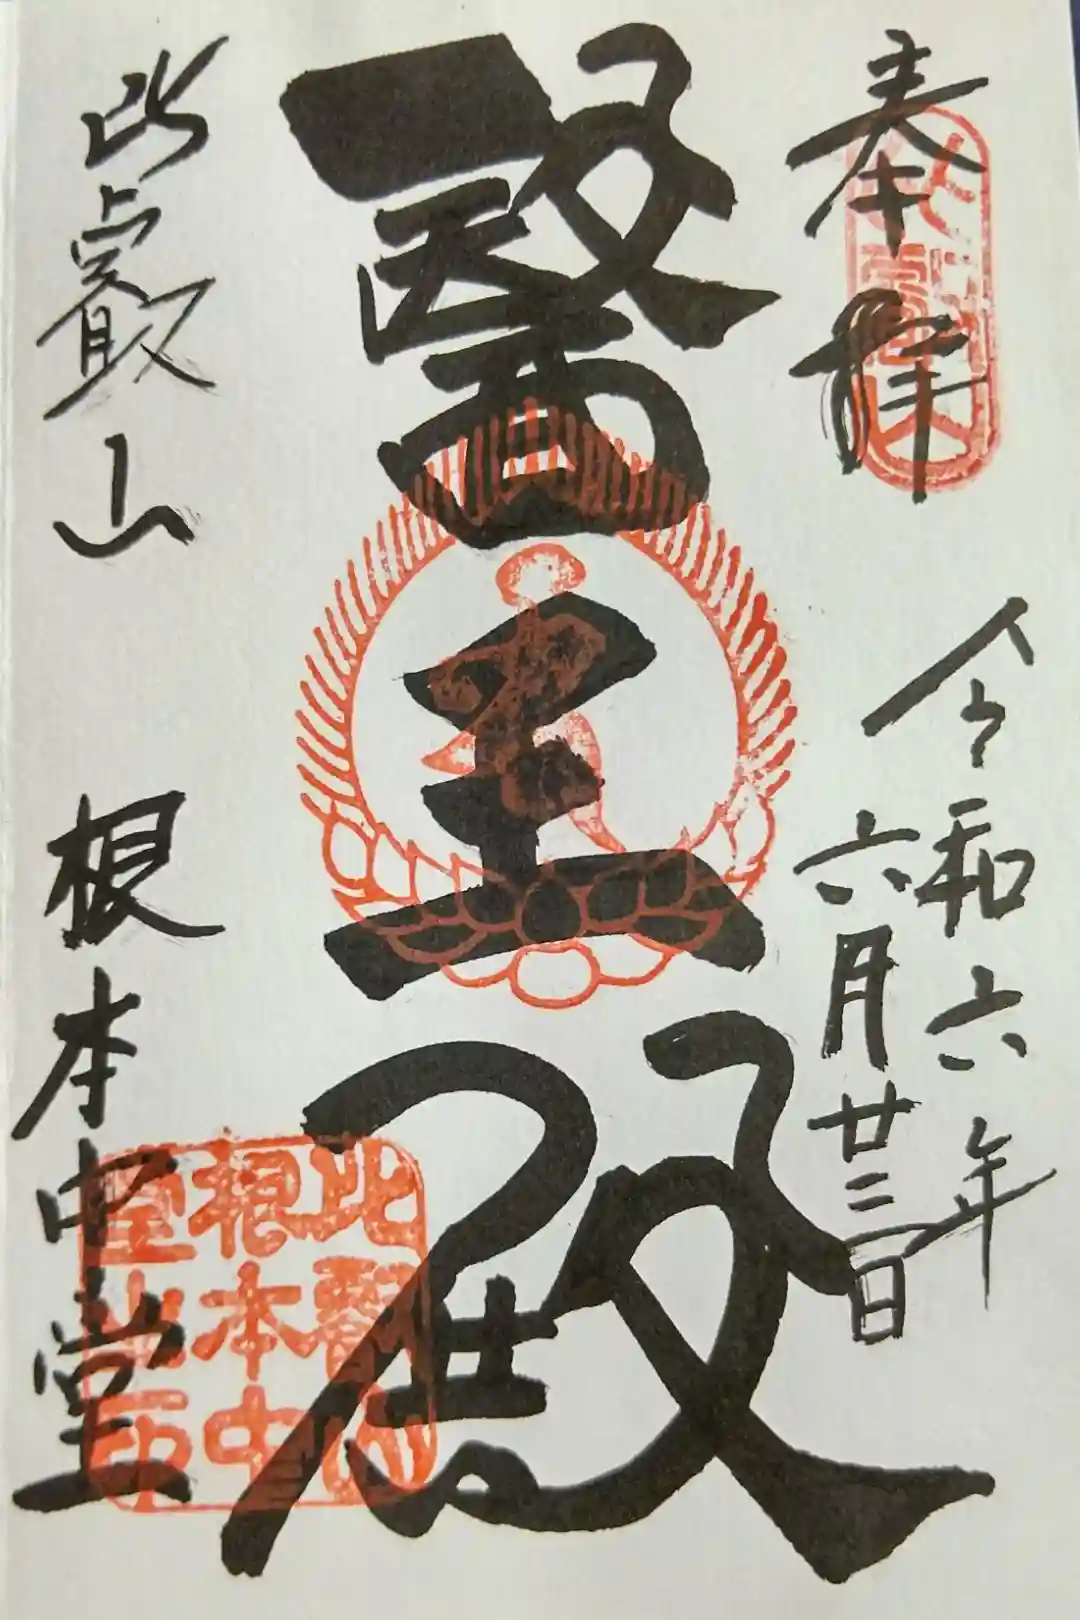 奉拝
令和六年
六月廿三日
醫王殿
比叡山
根本中堂
比叡山
根本中
堂之印